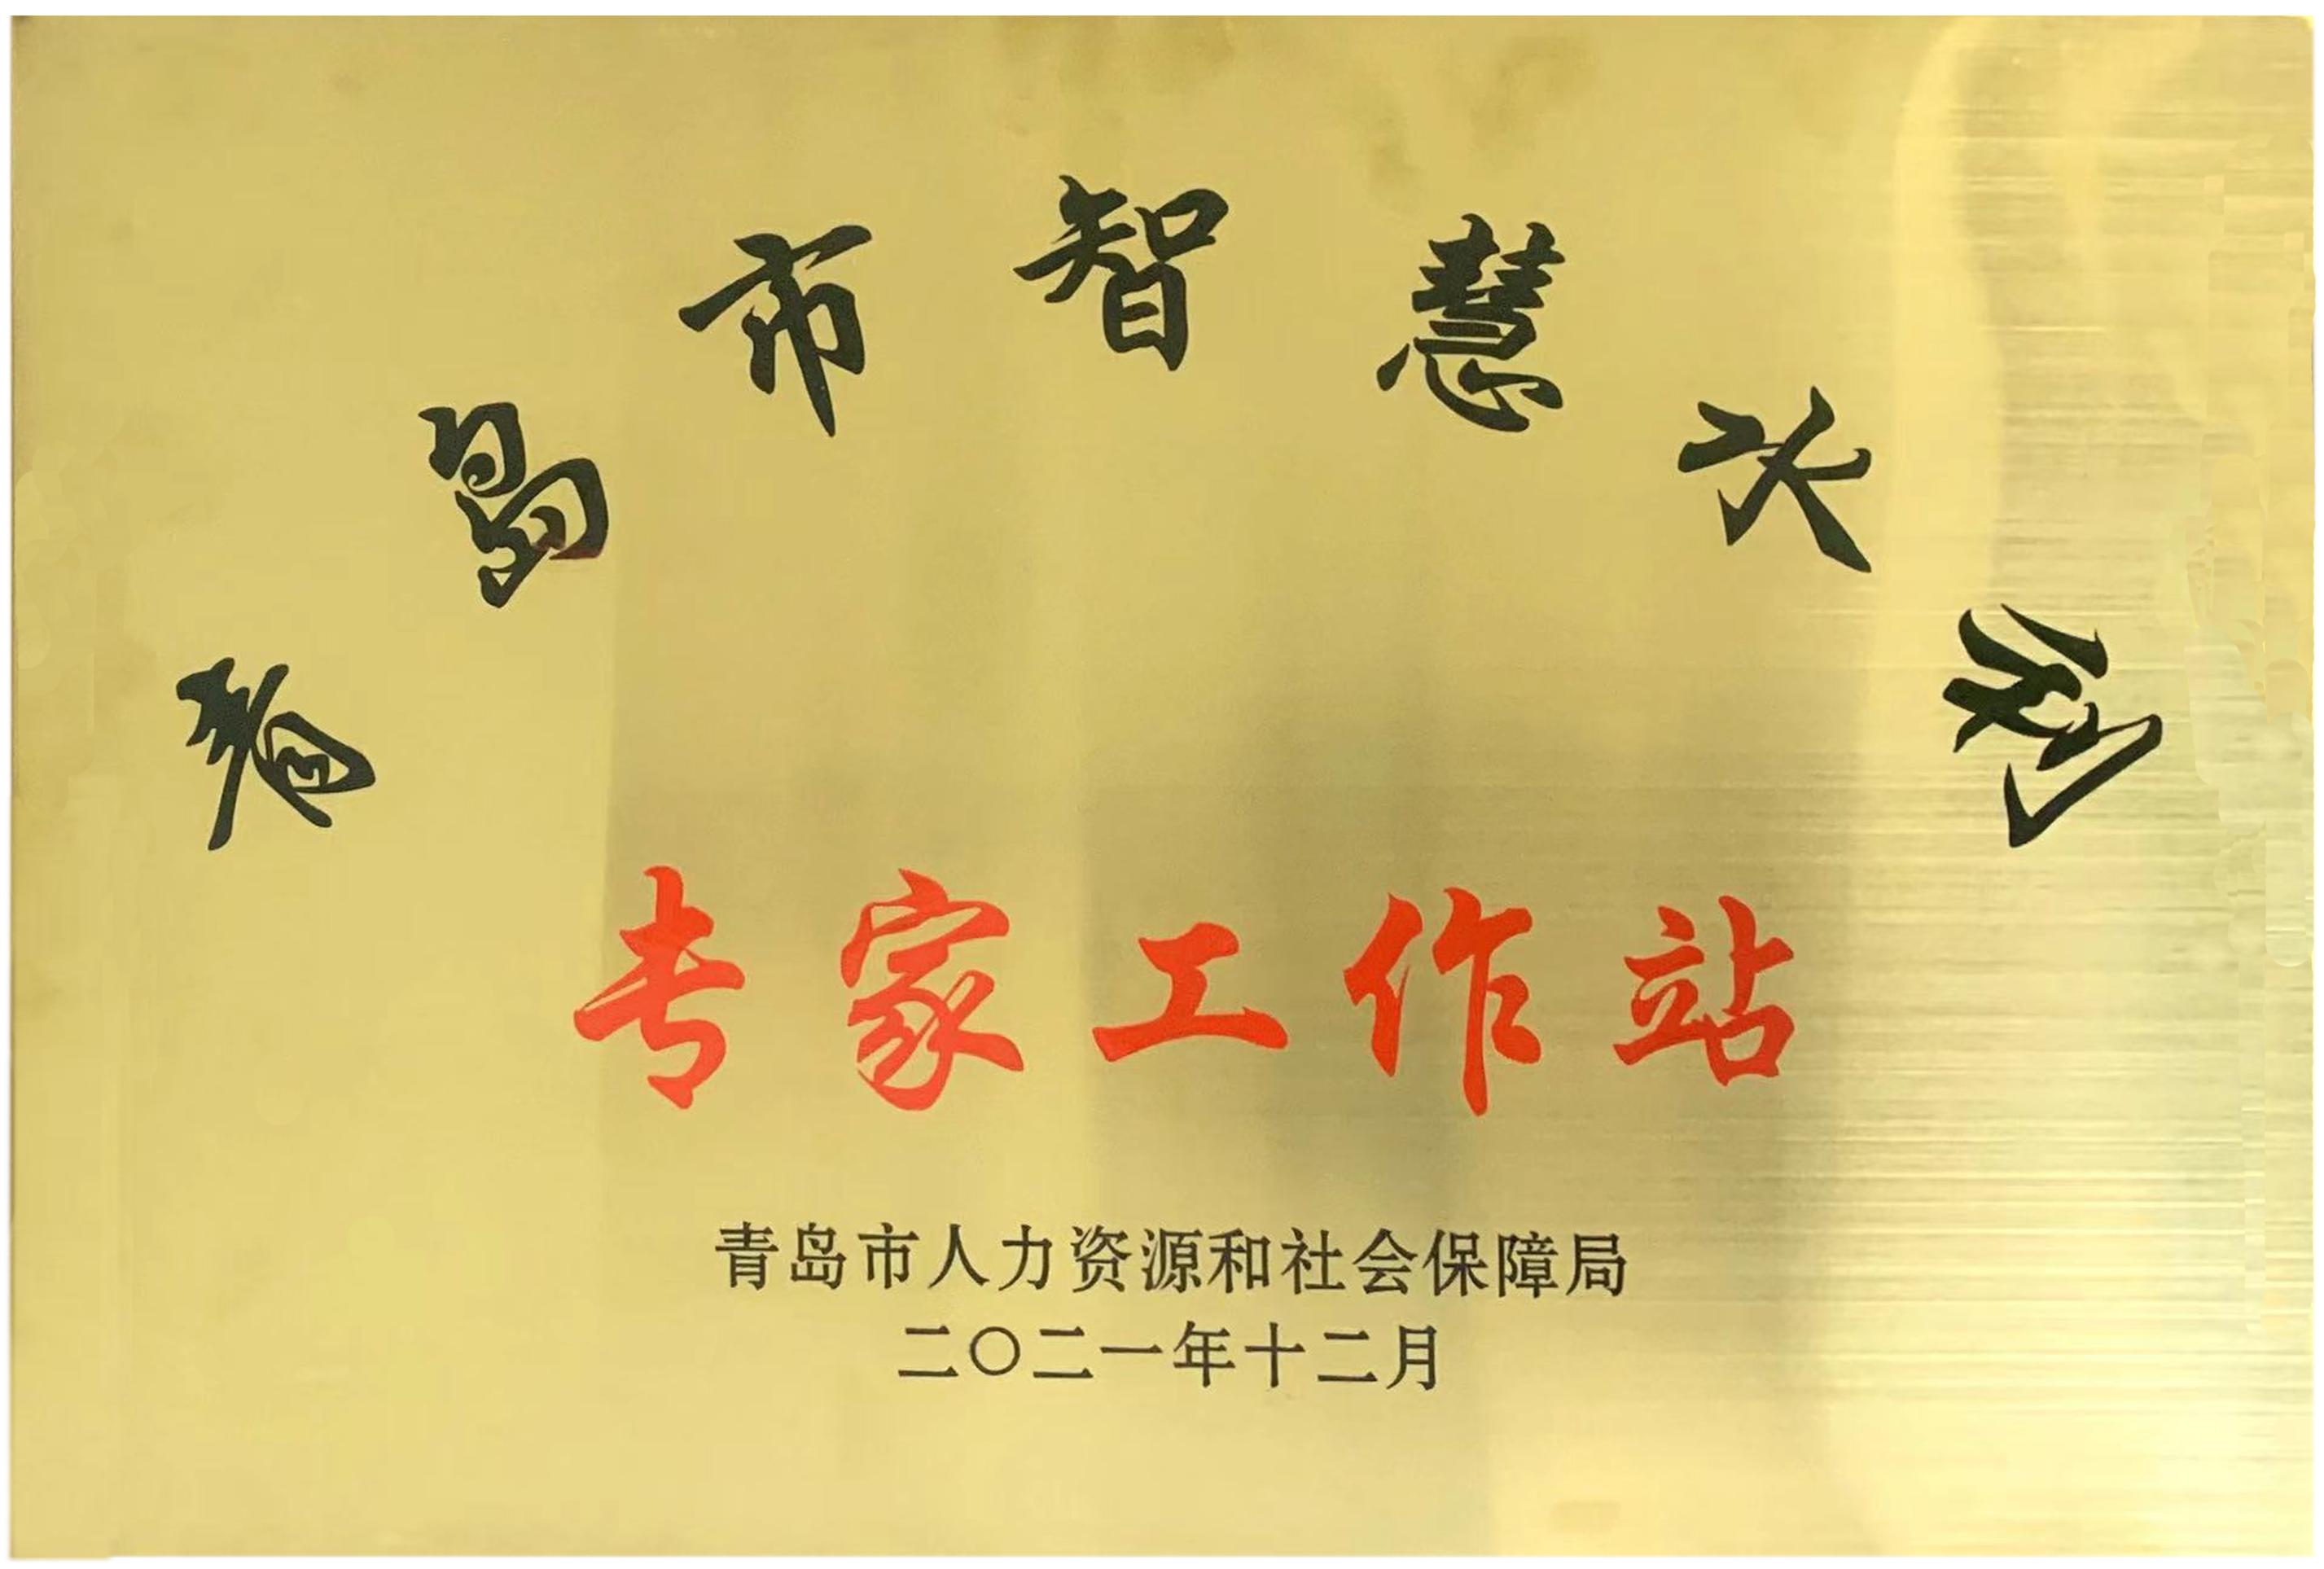 青岛市智慧水利
专家工作站
青岛市人力资源和社会保障局
二〇二一年十二月